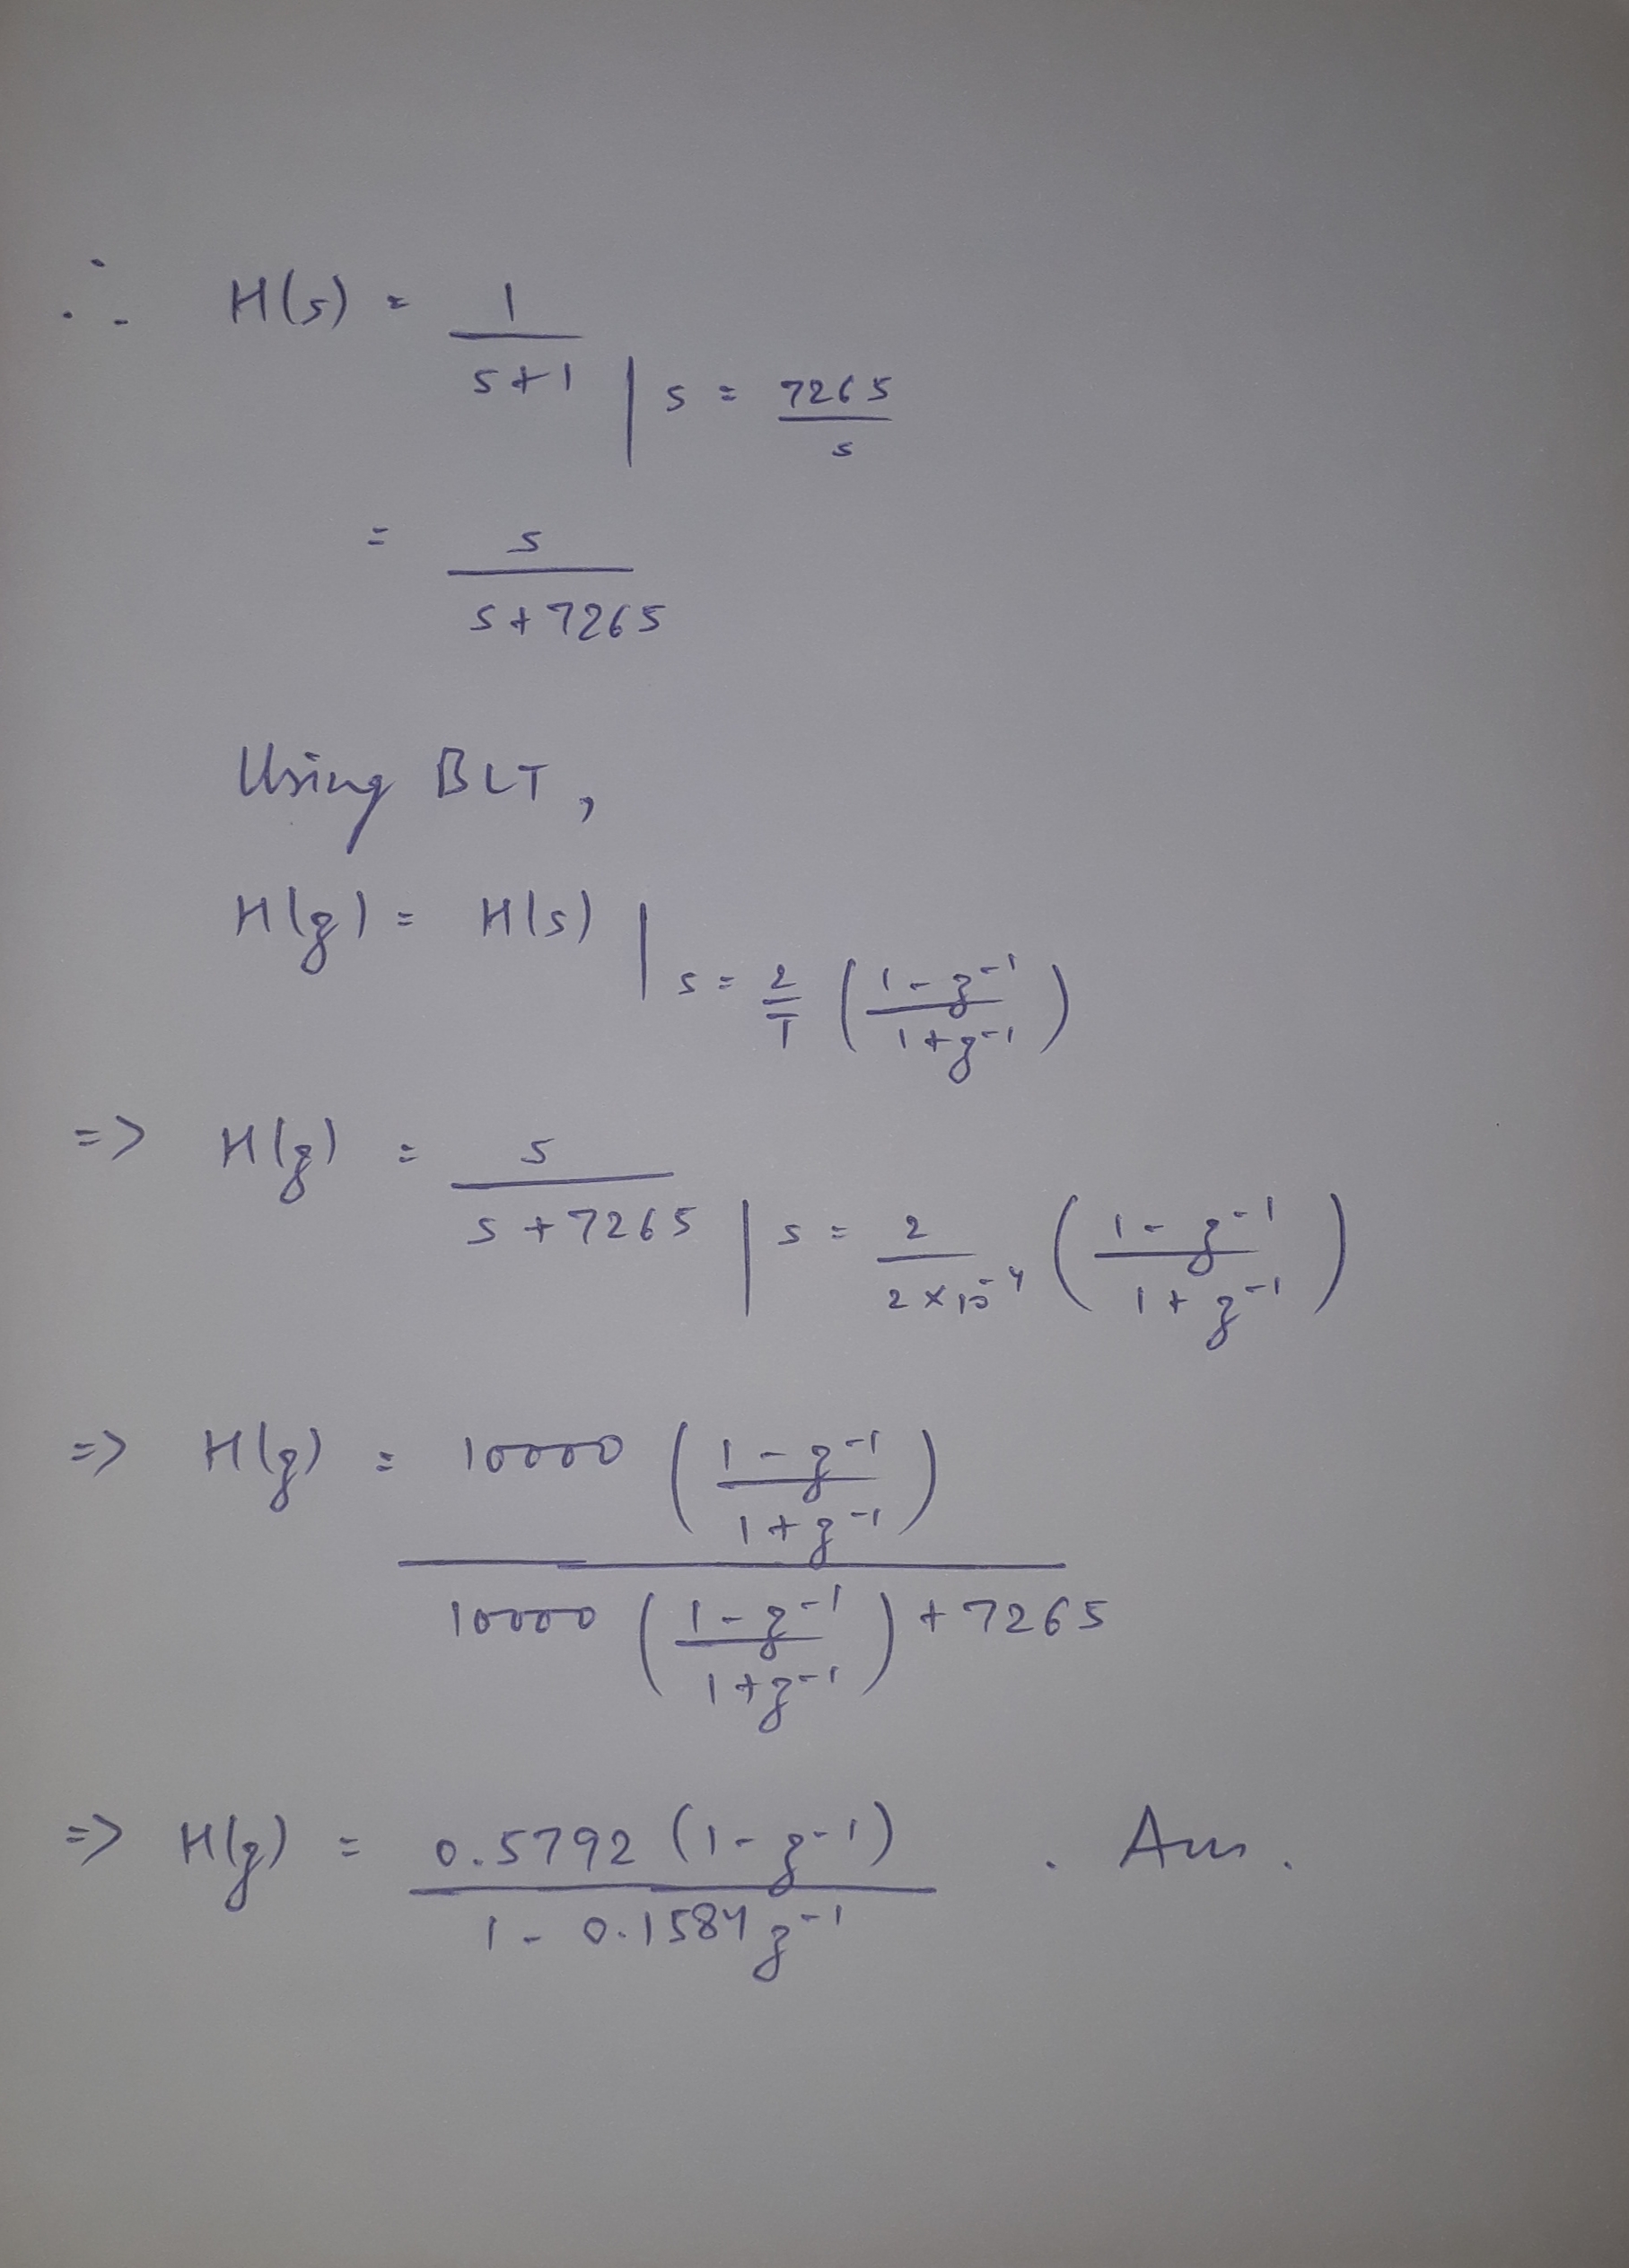 ∴ H(s) = 1/(s+1) | s = 7265/s
= s/(s+7265)
Using BLT,
H(z) = H(s) | s = 2/T ((1-z⁻¹)/(1+z⁻¹))
=> H(z) = s/(s+7265) | s = 2/(2×10⁻⁴) ((1-z⁻¹)/(1+z⁻¹))
=> H(z) = 10000 ((1-z⁻¹)/(1+z⁻¹)) / (10000 ((1-z⁻¹)/(1+z⁻¹)) + 7265)
=> H(z) = 0.5792 (1-z⁻¹) / (1-0.1584z⁻¹) . Ans.